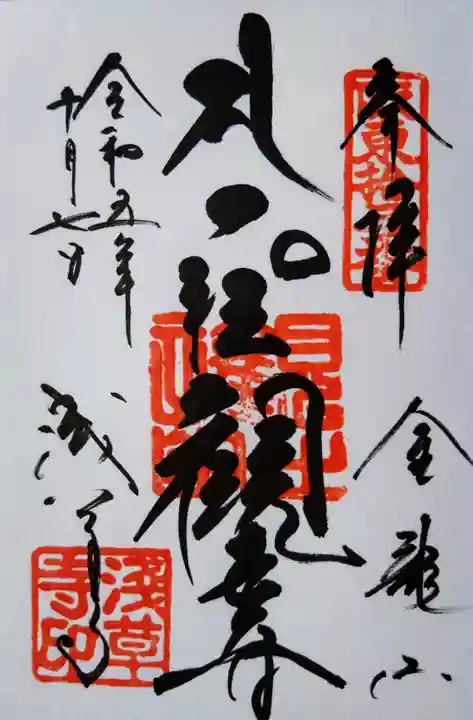 奉拝
金龍山
聖観世音
令和五年
十月七日
浅草寺
淺草寺印